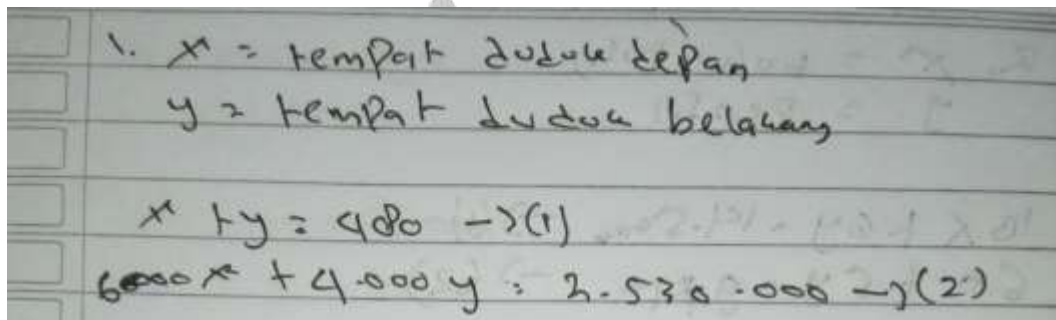 1. x = tempat duduk depan
y = tempat duduk belakang
x + y = 480 →(1)
6000 x + 4.000 y = 2.530.000 →(2)